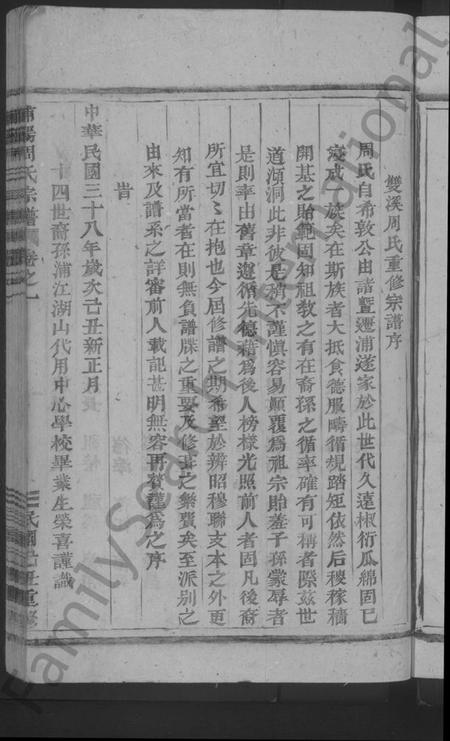 雙溪周氏重修宗譜序
周氏自希敦公由諸暨遷浦遂家於此世代久遠椒衍瓜綿固已
寖成一族矣在斯族者大抵食德服疇循規踏矩依然后稷稼穡
開基之貽範固知祖敎之有在裔孫之循率確有可稱者際茲世
道澒洞此非彼是稍不謹愼容易顚覆爲祖宗貽羞子孫蒙辱者
是則率由舊章遵循先德藉爲後人榜樣光照前人者固凡後裔
所宜切〻在抱也今屆修譜之期希望於辨昭穆聯支本之外更
知有所當者在則無負譜牒之重要及修葺之縻費矣至派別之
由來及譜系之詳審前人載記甚明無容再贅謹爲之序
旹
中華民國三十八年歲次己丑新正月
十四世裔孫浦江湖山代用中心學校畢業生榮喜謹識
浦陽周氏宗譜 卷之一
民國己丑重修
FamilySearch International